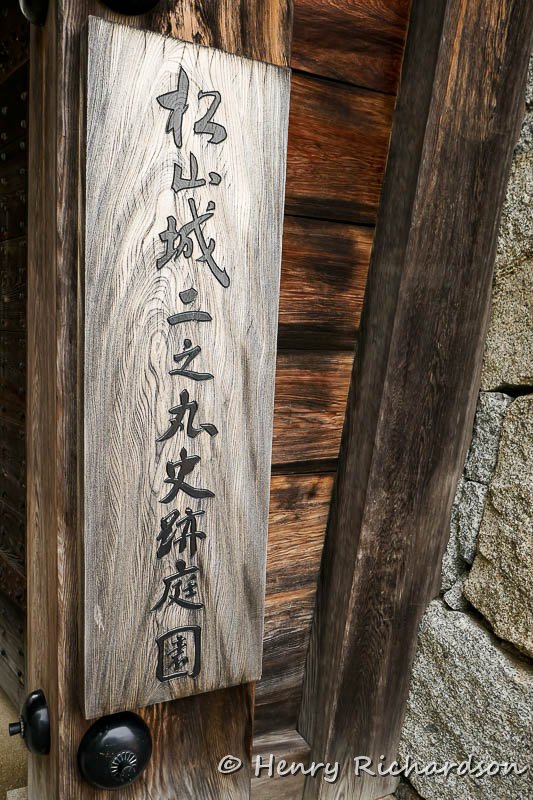 松山城二之丸史跡庭園
© Henry Richardson